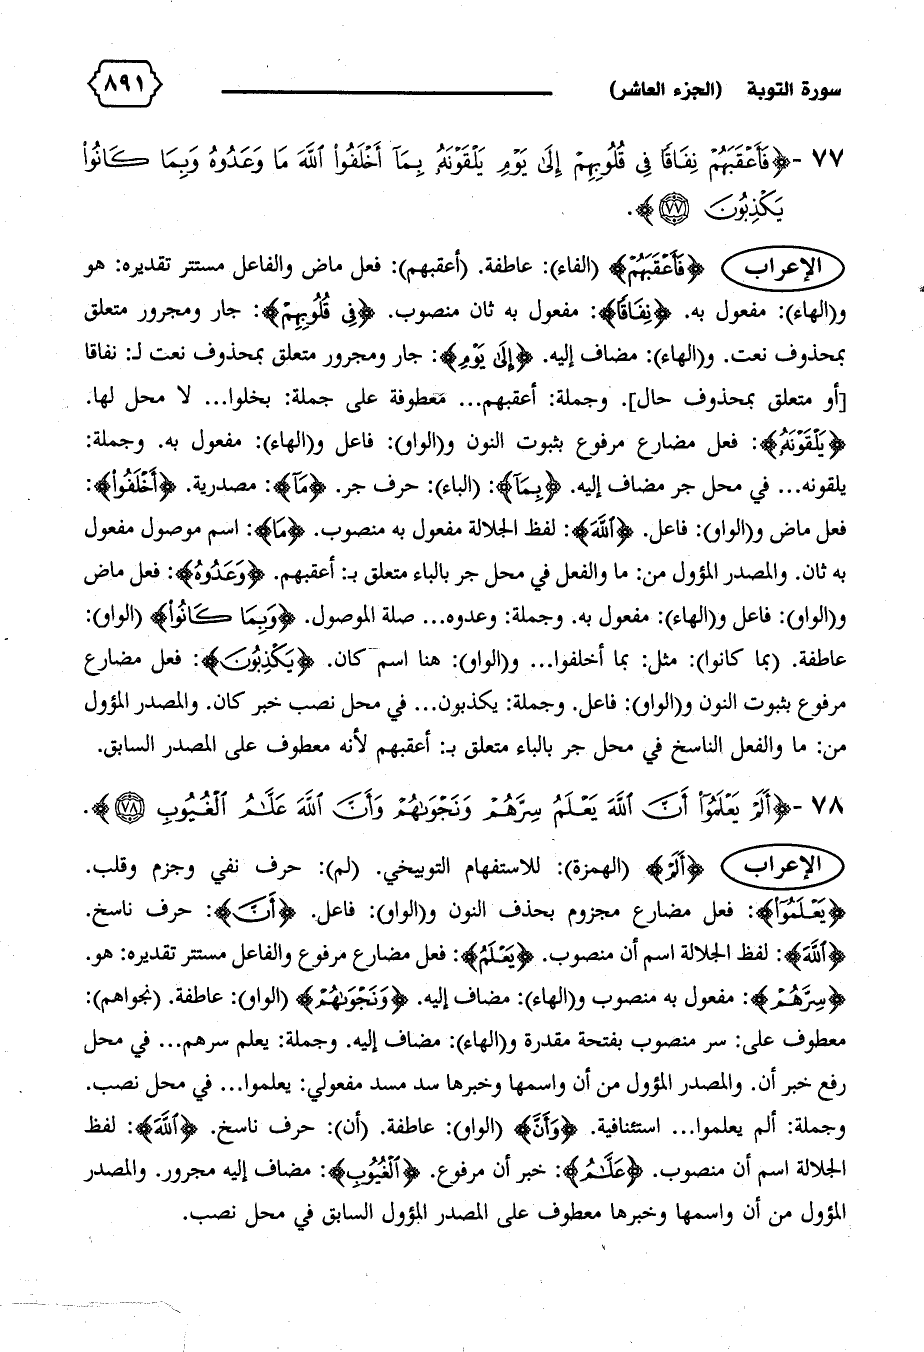 سورة التوبة (الجزء العاشر) ٨٩١
٧٧ -﴿فَأَعْقَبَهُمْ نِفَاقًا فِي قُلُوبِهِمْ إِلَىٰ يَوْمِ يَلْقَوْنَهُۥ بِمَآ أَخْلَفُوا۟ ٱللَّهَ مَا وَعَدُوهُ وَبِمَا كَانُوا۟
يَكْذِبُونَ ٧٧﴾.
الإعراب ﴿فَأَعْقَبَهُمْ﴾ (الفاء): عاطفة. (أعقبهم): فعل ماض والفاعل مستتر تقديره: هو
و(الهاء): مفعول به. ﴿نِفَاقًا﴾: مفعول به ثان منصوب. ﴿فِي قُلُوبِهِمْ﴾: جار ومجرور متعلق
بمحذوف نعت. و(الهاء): مضاف إليه. ﴿إِلَىٰ يَوْمِ﴾: جار ومجرور متعلق بمحذوف نعت لـ: نفاقا
[أو متعلق بمحذوف حال]. وجملة: أعقبهم... معطوفة على جملة: بخلوا... لا محل لها.
﴿يَلْقَوْنَهُۥ﴾: فعل مضارع مرفوع بثبوت النون و(الواو): فاعل و(الهاء): مفعول به. وجملة:
يلقونه... في محل جر مضاف إليه. ﴿بِمَآ﴾: (الباء): حرف جر. ﴿مَآ﴾: مصدرية. ﴿أَخْلَفُوا۟﴾:
فعل ماض و(الواو): فاعل. ﴿ٱللَّهَ﴾: لفظ الجلالة مفعول به منصوب. ﴿مَا﴾: اسم موصول مفعول
به ثان. والمصدر المؤول من: ما والفعل في محل جر بالباء متعلق بـ: أعقبهم. ﴿وَعَدُوهُ﴾: فعل ماض
و(الواو): فاعل و(الهاء): مفعول به. وجملة: وعدوه... صلة الموصول. ﴿وَبِمَا كَانُوا۟﴾ (الواو):
عاطفة. (بما كانوا): مثل: بما أخلفوا... و(الواو): هنا اسم كان. ﴿يَكْذِبُونَ﴾: فعل مضارع
مرفوع بثبوت النون و(الواو): فاعل. وجملة: يكذبون... في محل نصب خبر كان. والمصدر المؤول
من: ما والفعل الناسخ في محل جر بالباء متعلق بـ: أعقبهم لأنه معطوف على المصدر السابق.
٧٨ -﴿أَلَمْ يَعْلَمُوٓا۟ أَنَّ ٱللَّهَ يَعْلَمُ سِرَّهُمْ وَنَجْوَىٰهُمْ وَأَنَّ ٱللَّهَ عَلَّـٰمُ ٱلْغُيُوبِ ٧٨﴾.
الإعراب ﴿أَلَمْ﴾ (الهمزة): للاستفهام التوبيخي. (لم): حرف نفي وجزم وقلب.
﴿يَعْلَمُوٓا۟﴾: فعل مضارع مجزوم بحذف النون و(الواو): فاعل. ﴿أَنَّ﴾: حرف ناسخ.
﴿ٱللَّهَ﴾: لفظ الجلالة اسم أن منصوب. ﴿يَعْلَمُ﴾: فعل مضارع مرفوع والفاعل مستتر تقديره: هو.
﴿سِرَّهُمْ﴾: مفعول به منصوب و(الهاء): مضاف إليه. ﴿وَنَجْوَىٰهُمْ﴾ (الواو): عاطفة. (نجواهم):
معطوف على: سر منصوب بفتحة مقدرة و(الهاء): مضاف إليه. وجملة: يعلم سرهم... في محل
رفع خبر أن. والمصدر المؤول من أن واسمها وخبرها سد مسد مفعولي: يعلموا... في محل نصب.
وجملة: ألم يعلموا... استئنافية. ﴿وَأَنَّ﴾ (الواو): عاطفة. (أن): حرف ناسخ. ﴿ٱللَّهَ﴾: لفظ
الجلالة اسم أن منصوب. ﴿عَلَّـٰمُ﴾: خبر أن مرفوع. ﴿ٱلْغُيُوبِ﴾: مضاف إليه مجرور. والمصدر
المؤول من أن واسمها وخبرها معطوف على المصدر المؤول السابق في محل نصب.